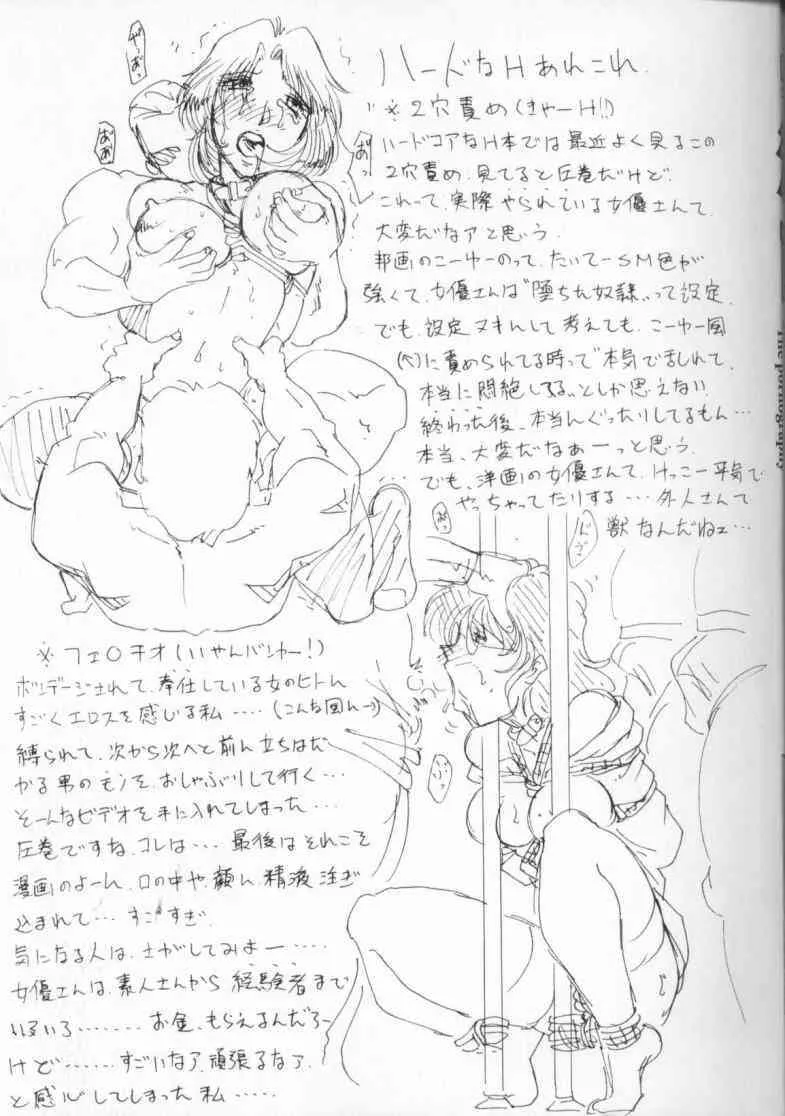 ハードなHあれこれ
※2穴責め(きゃーH!!)
ハードコアなH本では最近よく見るこの
2穴責め、見てると圧巻だけど
これって、実際やられている女優さんて、
大変だなアと思う
邦画のこーゆーのって、たいてーSM色が
強くて、女優さんは"堕ちた奴隷"って設定、
でも、設定ヌキにして考えても、こーゆー風
に責められてる時って"本気で乱れて、
本当に悶絶してる"としか思えない
終わった後、本当にぐったりしてるもん…
本当、大変だなぁーっと思う
でも、洋画の女優さんて、けっこー平気で
やっちゃってたりする…外人さんて
獣なんだねェ…
※フェ〇チオ(いやんバカー!)
ボンデージされて、奉仕している女のヒトに
すごくエロスを感じる私‥‥(こんな図に→)
縛られて、次から次へと前に立ちはだ
かる男のモノを、おしゃぶりして行く…
そーんなビデオを手に入れてしまった…
圧巻ですね、コレは… 最後はそれこそ
漫画のよーに、口の中や、顔に、精液注ぎ
込まれて… すごすぎ
気になる人は、さがしてみよー‥‥
女優さんは、素人さんから経験者まで
いろいろ……… お金、もらえるんだろー
けど……… すごいなア、頑張るなア、
と感心してしまった私‥‥‥
The pornography